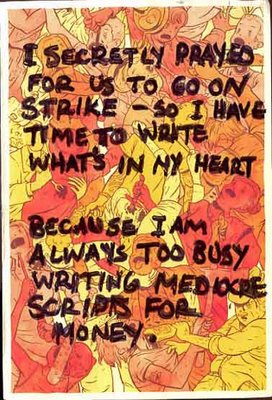 I SECRETLY PRAYED
FOR US TO GO ON
STRIKE – SO I HAVE
TIME TO WRITE
WHAT'S IN MY HEART
BECAUSE I AM
ALWAYS TOO BUSY
WRITING MEDIOCRE
SCRIPTS FOR
MONEY.